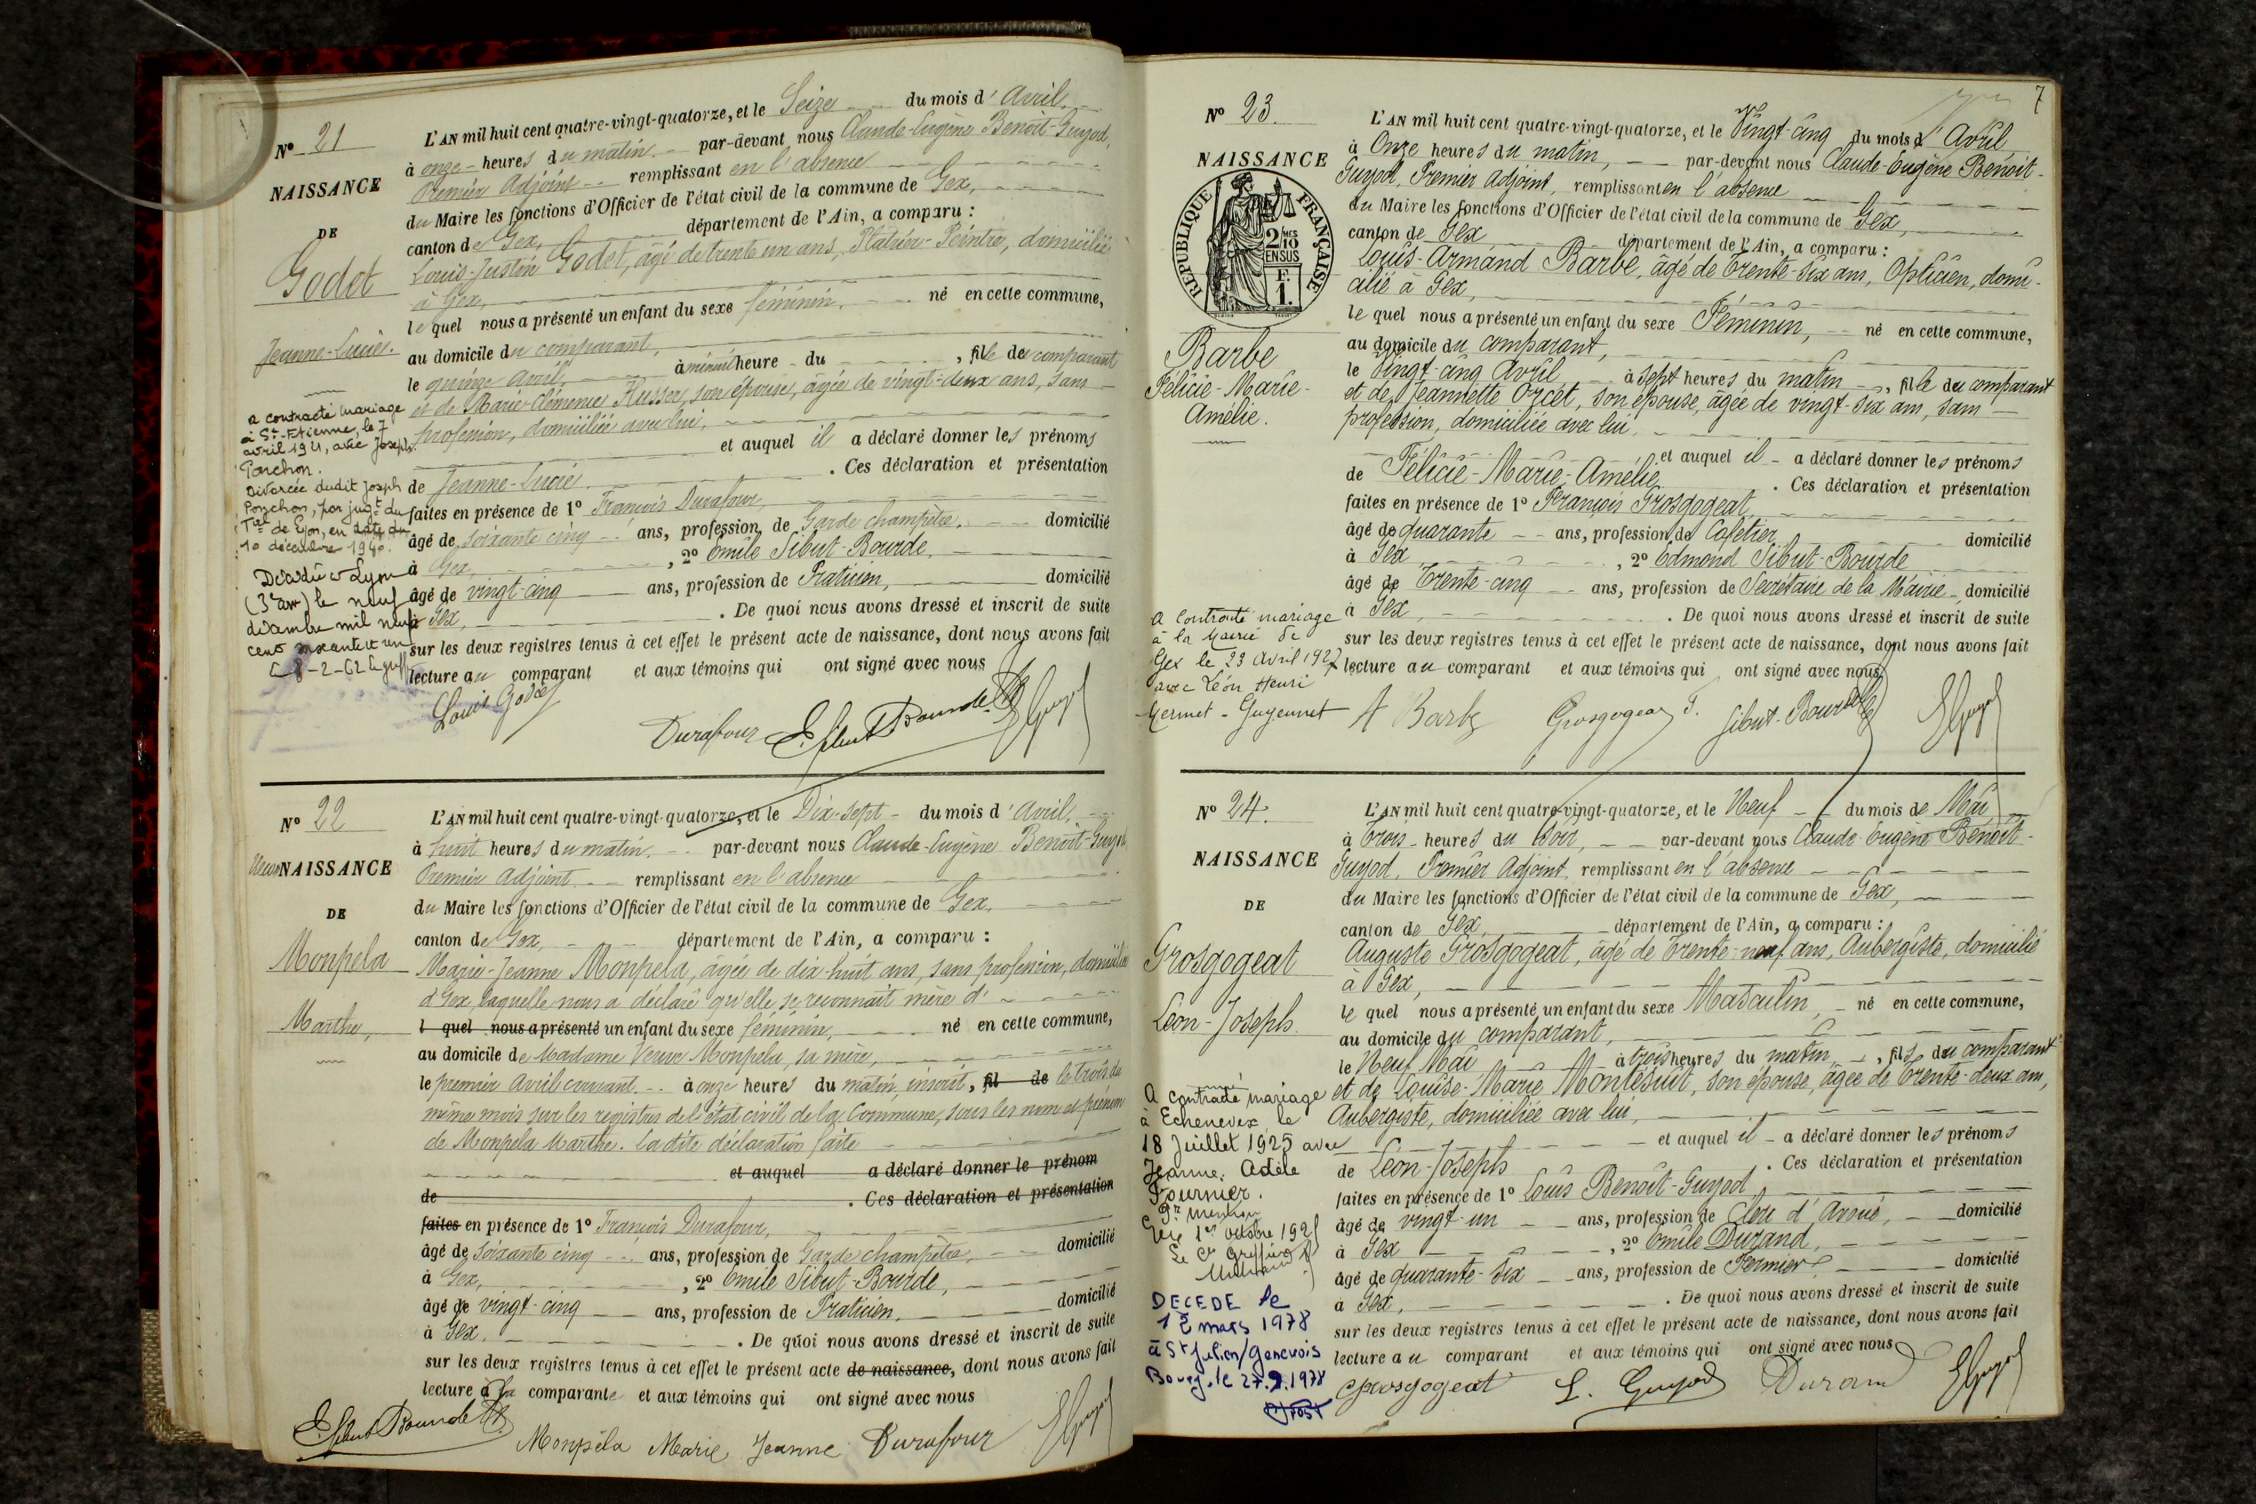 N° 21
NAISSANCE
DE
Godet
Jeanne-Lucie.
a contracté mariage
à St-Etienne, le 7
avril 1921, avec Joseph
Ponchon.
Divorcée dudit Joseph
Ponchon, par jugt du
Tal de Lyon, en date du
10 décembre 1940.
Décédée à Lyon
(3e arr) le neuf
décembre mil neuf
cent soixante et un
L'AN mil huit cent quatre-vingt-quatorze, et le Seize du mois d'Avril,
à onze heures du matin par-devant nous Claude-Eugène Benoit-Guyod,
Premier Adjoint remplissant en l'absence
du Maire les fonctions d'Officier de l'état civil de la commune de Gex,
canton de Gex, département de l'Ain, a comparu :
Louis-Justin Godet, âgé de trente un ans, Platrier-Peintre, domicilié
à Gex,
le quel nous a présenté un enfant du sexe féminin, né en cette commune,
au domicile du comparant,
le quinze avril, à minuit heure du , fille de comparant
et de Marie-Clémence Husson, son épouse, âgée de vingt-deux ans, sans
profession, domiciliée avec lui,
et auquel il a déclaré donner les prénoms
de Jeanne-Lucie. . Ces déclaration et présentation
faites en présence de 1° François Durafour,
âgé de soixante cinq ans, profession de Garde champêtre, domicilié
à Gex, , 2° Emile Sibut-Bourde,
âgé de vingt-cinq ans, profession de Praticien, domicilié
à Gex, . De quoi nous avons dressé et inscrit de suite
sur les deux registres tenus à cet effet le présent acte de naissance, dont nous avons fait
lecture au comparant et aux témoins qui ont signé avec nous
Louis Godet Durafour E. Sibut Bourde EGuyod
N° 22
NAISSANCE
DE
Monpela
Marthe,
L'AN mil huit cent quatre-vingt-quatorze, et le Dix-sept du mois d'Avril,
à huit heures du matin, par-devant nous Claude-Eugène Benoit-Guyod,
Premier adjoint remplissant en l'absence
du Maire les fonctions d'Officier de l'état civil de la commune de Gex,
canton de Gex, département de l'Ain, a comparu :
Marie-Jeanne Monpela, âgée de dix-huit ans, sans profession, domiciliée
à Gex, laquelle nous a déclaré qu'elle se reconnait mère d'
l quel nous a présenté un enfant du sexe féminin, né en cette commune,
au domicile de Madame Veuve Monpela, sa mère,
le premier Avril courant à onze heures du matin, inscrit, fil de le trois du
même mois sur les registres de l'état civil de la Commune, sous les nom et prénom
de Monpela Marthe. La dite déclaration faite
et auquel a déclaré donner le prénom
de . Ces déclaration et présentation
faites en présence de 1° François Durafour,
âgé de soixante cinq ans, profession de Garde champêtre, domicilié
à Gex, , 2° Emile Sibut-Bourde,
âgé de vingt-cinq ans, profession de Praticien, domicilié
à Gex, . De quoi nous avons dressé et inscrit de suite
sur les deux registres tenus à cet effet le présent acte de naissance, dont nous avons fait
lecture à la comparante et aux témoins qui ont signé avec nous
E. Sibut Bourde Monpela Marie Jeanne Durafour EGuyod
7
N° 23.
NAISSANCE
RÉPUBLIQUE FRANÇAISE
2 MES 2/10 EN SUS
F. 1.
Barbe
Félicie-Marie-
Amélie.
a contracté mariage
à la Mairie de
Gex le 23 avril 1927
avec Léon Henri
Mermet-Guyennet
L'AN mil huit cent quatre-vingt-quatorze, et le Vingt-cinq du mois d'Avril
à Onze heures du matin, par-devant nous Claude-Eugène Benoit-
Guyod, Premier Adjoint, remplissant en l'absence
du Maire les fonctions d'Officier de l'état civil de la commune de Gex,
canton de Gex département de l'Ain, a comparu :
Louis-Armand Barbe, âgé de trente-six ans, Opticien, domi-
cilié à Gex,
le quel nous a présenté un enfant du sexe Féminin, né en cette commune,
au domicile du comparant,
le Vingt-cinq Avril à sept heures du matin, fille du comparant
et de Jeannette Orcet, son épouse, âgée de vingt-six ans, sans
profession, domiciliée avec lui,
et auquel il a déclaré donner les prénoms
de Félicie-Marie-Amélie . Ces déclaration et présentation
faites en présence de 1° François Grosgogeat
âgé de quarante ans, profession de Cafetier domicilié
à Gex , 2° Edmond Sibut-Bourde
âgé de Trente-cinq ans, profession de Secrétaire de la Mairie, domicilié
à Gex . De quoi nous avons dressé et inscrit de suite
sur les deux registres tenus à cet effet le présent acte de naissance, dont nous avons fait
lecture au comparant et aux témoins qui ont signé avec nous.
A Barbe Grosgogeat F. Sibut-Bourde EGuyod
N° 24.
NAISSANCE
DE
Grosgogeat
Léon-Joseph.
A contracté mariage
à Echenevex le
18 Juillet 1925 avec
Jeanne, Adèle
Fournier.
Pr mention
Gex 1er octobre 1925
Le Cs Greffier
DECEDE le
1er mars 1978
à St Julien/Genevois
Bourg. le 27.2.1978
L'AN mil huit cent quatre-vingt-quatorze, et le Neuf du mois de Mai
à Trois heures du soir, par-devant nous Claude-Eugène Benoit-
Guyod, Premier Adjoint, remplissant en l'absence
du Maire les fonctions d'Officier de l'état civil de la commune de Gex,
canton de Gex, département de l'Ain, a comparu :
Auguste Grosgogeat, âgé de trente-neuf ans, Aubergiste, domicilié
à Gex,
le quel nous a présenté un enfant du sexe Masculin, né en cette commune,
au domicile du comparant,
le Neuf Mai à trois heures du matin, fils du comparant
et de Louise-Marie Montésuit, son épouse, âgée de trente-deux ans,
Aubergiste, domiciliée avec lui,
et auquel il a déclaré donner les prénoms
de Léon-Joseph . Ces déclaration et présentation
faites en présence de 1° Louis Benoit-Guyod
âgé de vingt-un ans, profession de Clerc d'Avoué, domicilié
à Gex , 2° Emile Durand,
âgé de quarante-six ans, profession de Fermier, domicilié
à Gex, . De quoi nous avons dressé et inscrit de suite
sur les deux registres tenus à cet effet le présent acte de naissance, dont nous avons fait
lecture au comparant et aux témoins qui ont signé avec nous
Grosgogeat L. Guyod Durand EGuyod